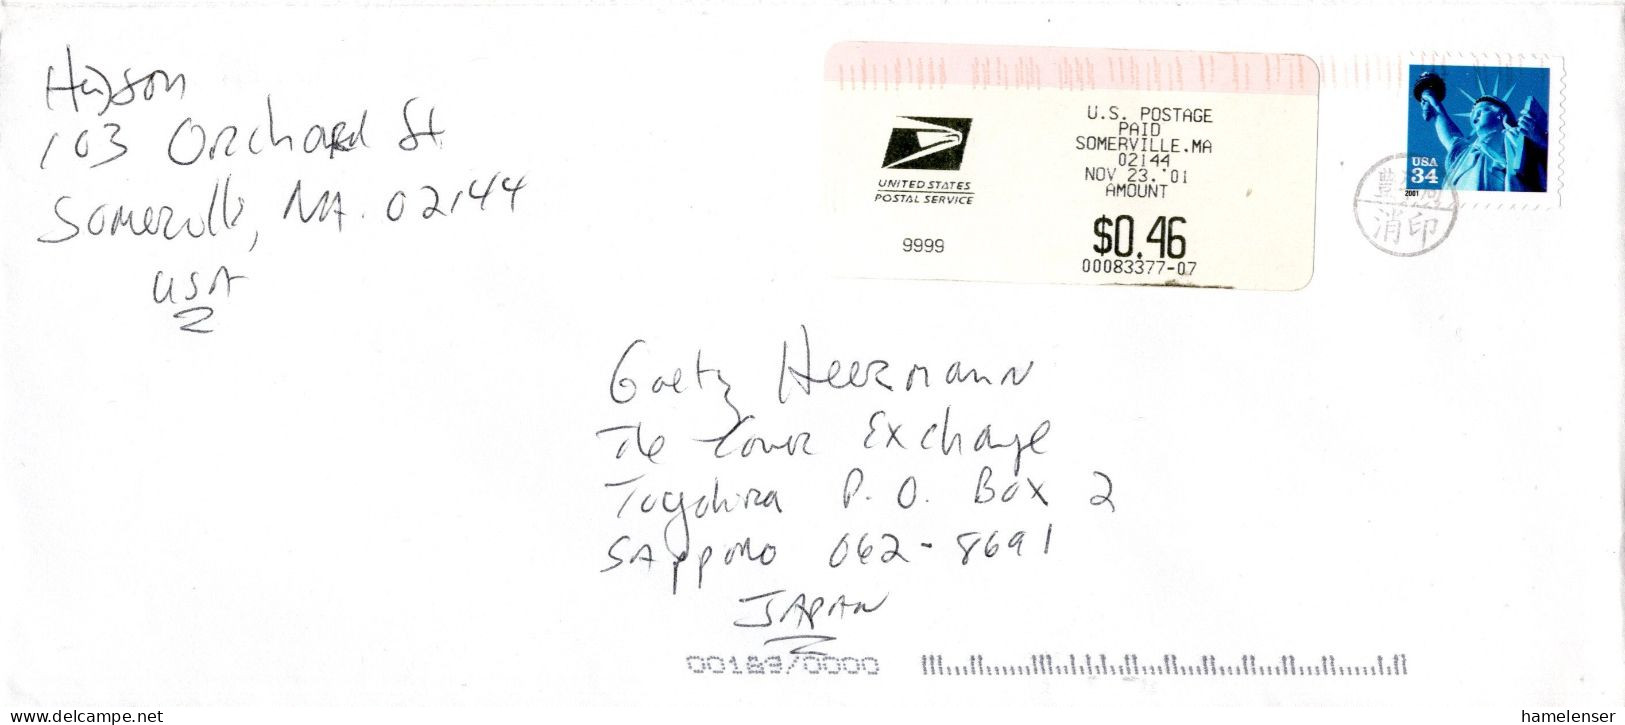 103 Orchard St
Somerville, MA. 02144
USA
UNITED STATES
POSTAL SERVICE
9999
U.S. POSTAGE
PAID
SOMERVILLE.MA
02144
NOV 23.'01
AMOUNT
$0.46
00083377-07
USA
34
2001
消印
Goetz Heermann
The Cover Exchange
Toyohira P. O. Box 2
SAPPORO 062-8691
JAPAN
00189/0000
hamelenser